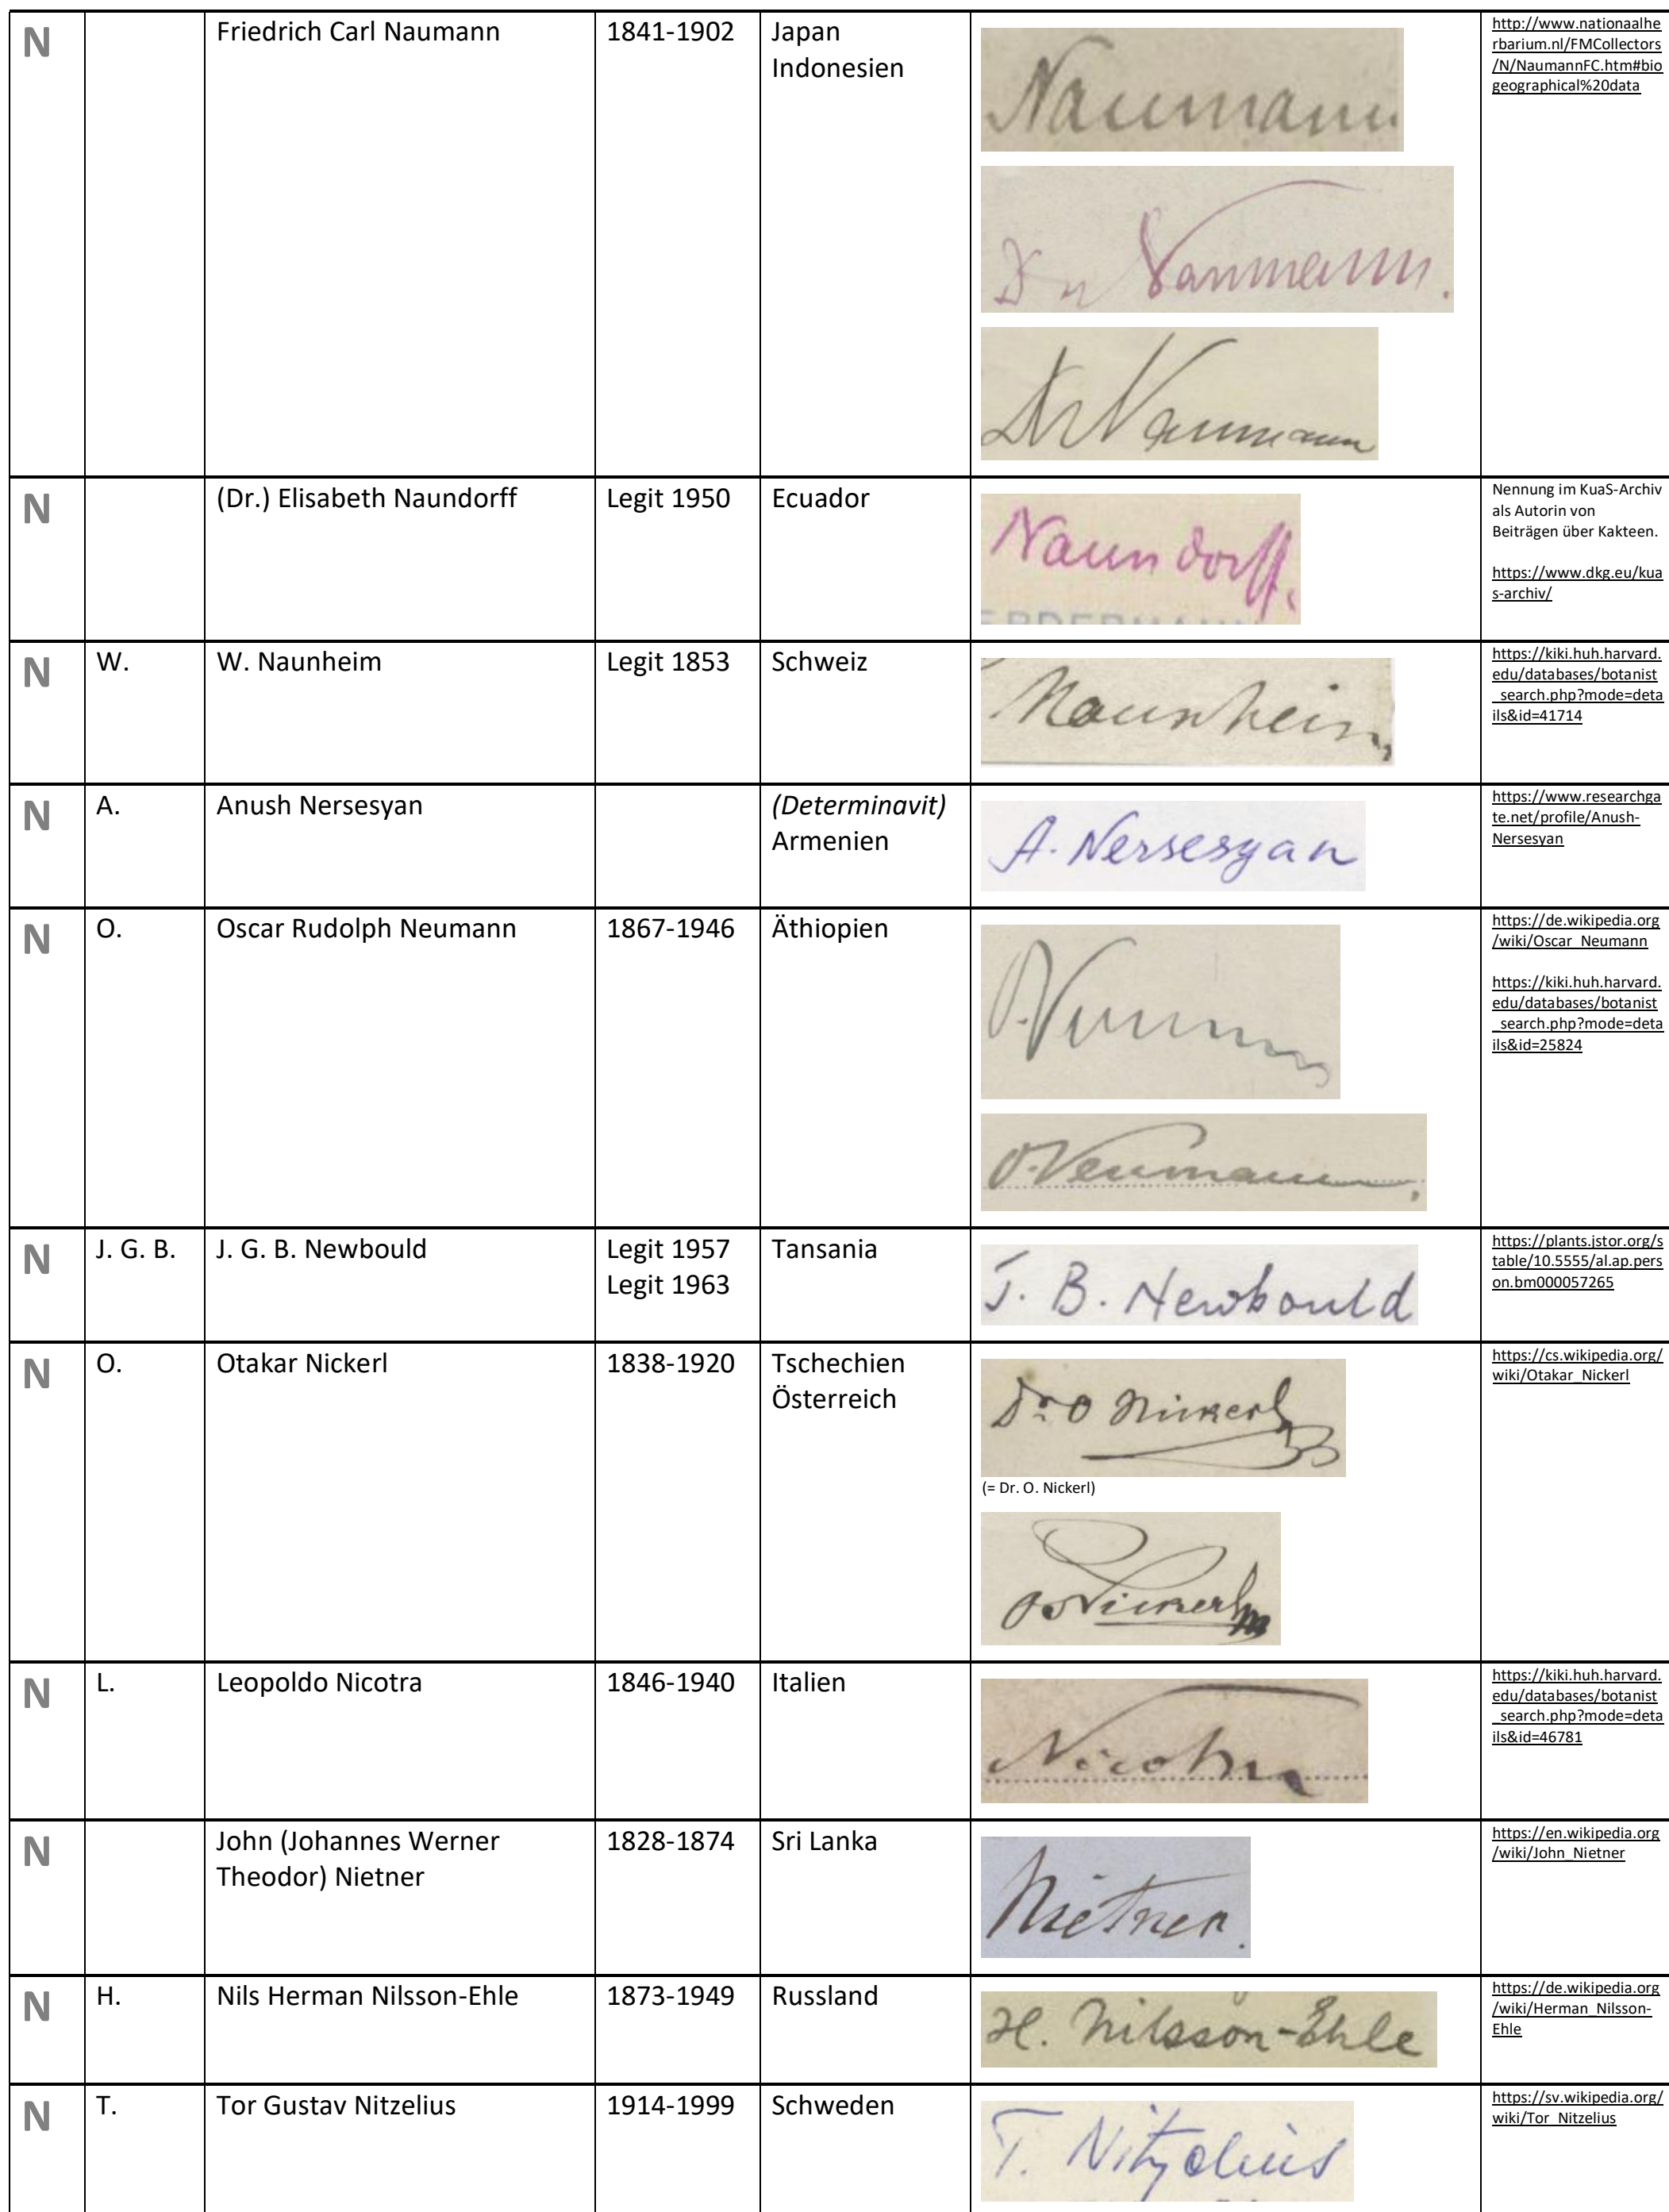 N
Friedrich Carl Naumann
1841-1902
Japan
Indonesien
Naumann
Dr Naumann.
Dr Naumann
http://www.nationaalhe
rbarium.nl/FMCollectors
/N/NaumannFC.htm#bio
geographical%20data
N
(Dr.) Elisabeth Naundorff
Legit 1950
Ecuador
Naundorff.
Nennung im KuaS-Archiv
als Autorin von
Beiträgen über Kakteen.
https://www.dkg.eu/kua
s-archiv/
N
W.
W. Naunheim
Legit 1853
Schweiz
Naunheim
https://kiki.huh.harvard.
edu/databases/botanist
_search.php?mode=deta
ils&id=41714
N
A.
Anush Nersesyan
(Determinavit)
Armenien
A. Nersesyan
https://www.researchga
te.net/profile/Anush-
Nersesyan
N
O.
Oscar Rudolph Neumann
1867-1946
Äthiopien
O. Neumann
O. Neumann.
https://de.wikipedia.org
/wiki/Oscar_Neumann
https://kiki.huh.harvard.
edu/databases/botanist
_search.php?mode=deta
ils&id=25824
N
J. G. B.
J. G. B. Newbould
Legit 1957
Legit 1963
Tansania
J. B. Newbould
https://plants.jstor.org/s
table/10.5555/al.ap.pers
on.bm000057265
N
O.
Otakar Nickerl
1838-1920
Tschechien
Österreich
Dr. O Nickerl
(= Dr. O. Nickerl)
O Nickerl
https://cs.wikipedia.org/
wiki/Otakar_Nickerl
N
L.
Leopoldo Nicotra
1846-1940
Italien
Nicotra
https://kiki.huh.harvard.
edu/databases/botanist
_search.php?mode=deta
ils&id=46781
N
John (Johannes Werner
Theodor) Nietner
1828-1874
Sri Lanka
Nietner.
https://en.wikipedia.org
/wiki/John_Nietner
N
H.
Nils Herman Nilsson-Ehle
1873-1949
Russland
H. Nilsson-Ehle
https://de.wikipedia.org
/wiki/Herman_Nilsson-
Ehle
N
T.
Tor Gustav Nitzelius
1914-1999
Schweden
T. Nitzelius
https://sv.wikipedia.org/
wiki/Tor_Nitzelius